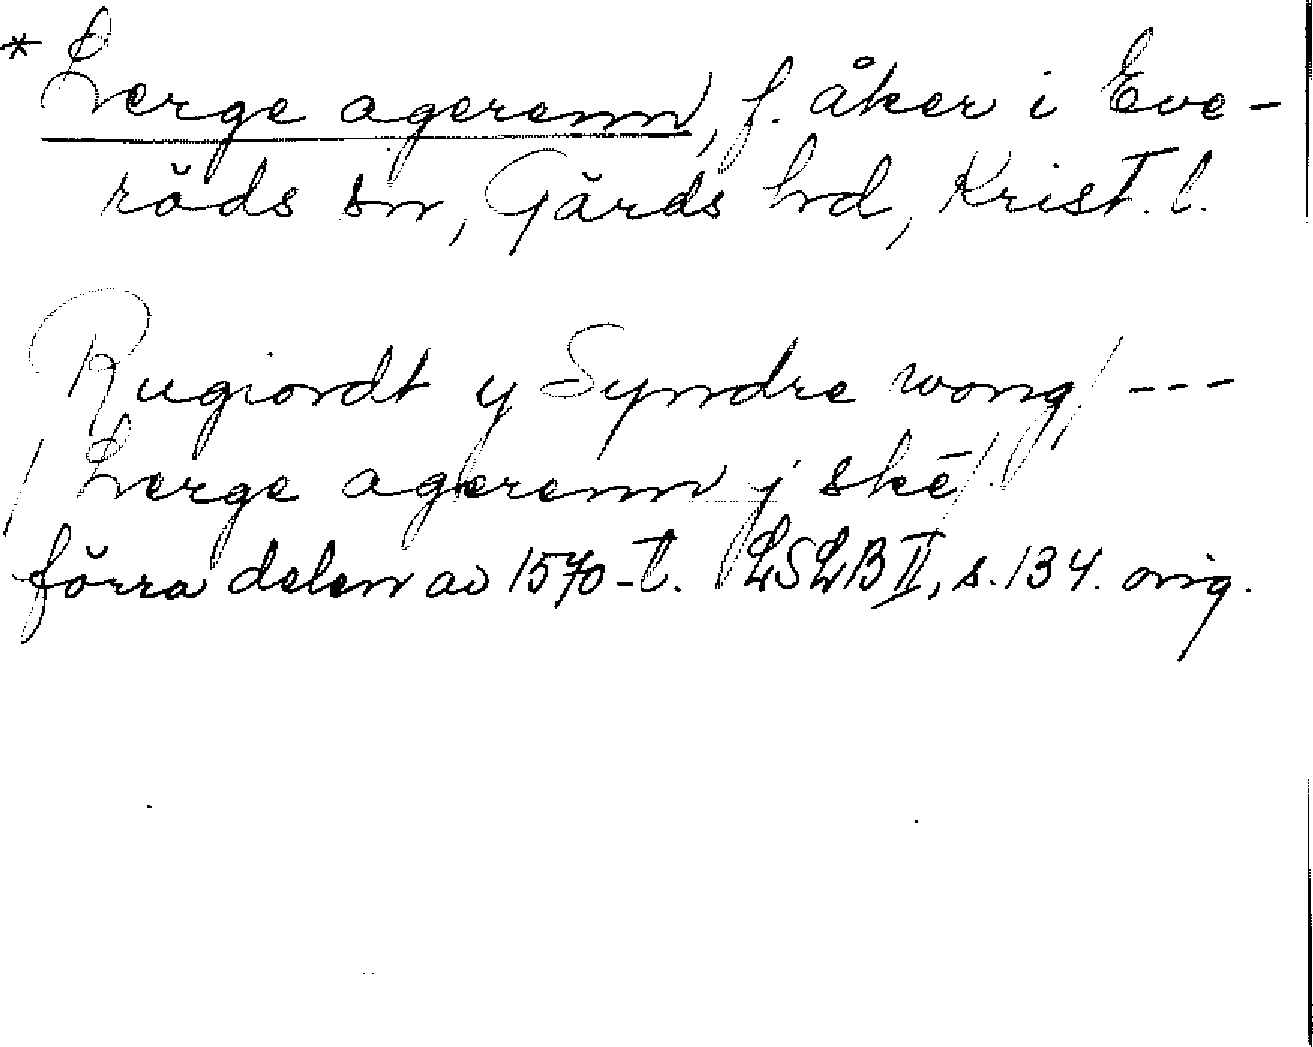 * Lerge agerenn, f. åker i Eve-
röds sn, Gärds hd, Krist. l.
Rugiordt y Syndre wong / ---
/ Lerge agerenn j skē /.
förra delen av 1570-t. LSLB II, s. 134. orig.